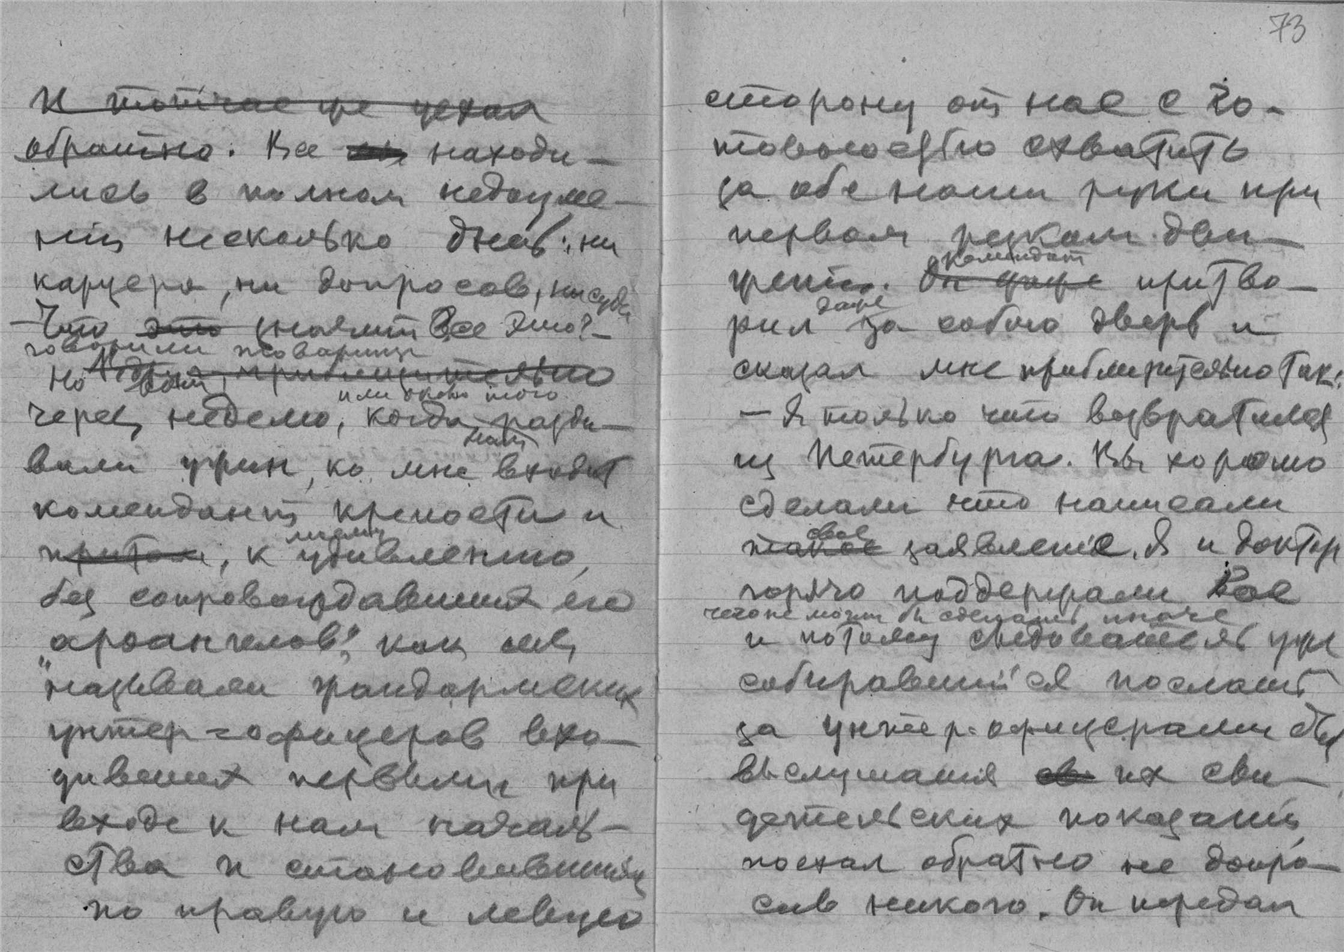 и тотчас же уехал
обратно. Все находи-
лись в полном недоуме-
ніи несколько дней: ни
карцера, ни допросов, ни суда
- Что это значит Все Это? -
говорили товарищи
Но вот, приблизительно
или около того
через неделю, когда разда-
нам
вали ужин, ко мне входит
комендант крепости и
моему
притом, к удивлению,
без сопровождавших его
"архангелов", как мы
называли жандармских
унтер-офицеров вхо-
дивших первыми при
входе к нам началь-
ства и становившихся
по правую и левую
73
сторону от нас с го-
товностью схватить
за обе наши руки при
первом резком дви-
комендант
жении. Он даже притво-
даже
рил за собою дверь и
сказал мне приблизительно так:
- Я только что возвратился
из Петербурга. Вы хорошо
сделали что написали
свое
такое заявление. Я и доктор
горячо поддержали Вас
чего не могли бы сделать иначе
и потому следователь уже
собиравшийся послать
за унтер-офицерами для
выслушания их сви-
детельских показаній
поехал обратно не допро-
сив никого. Он передал